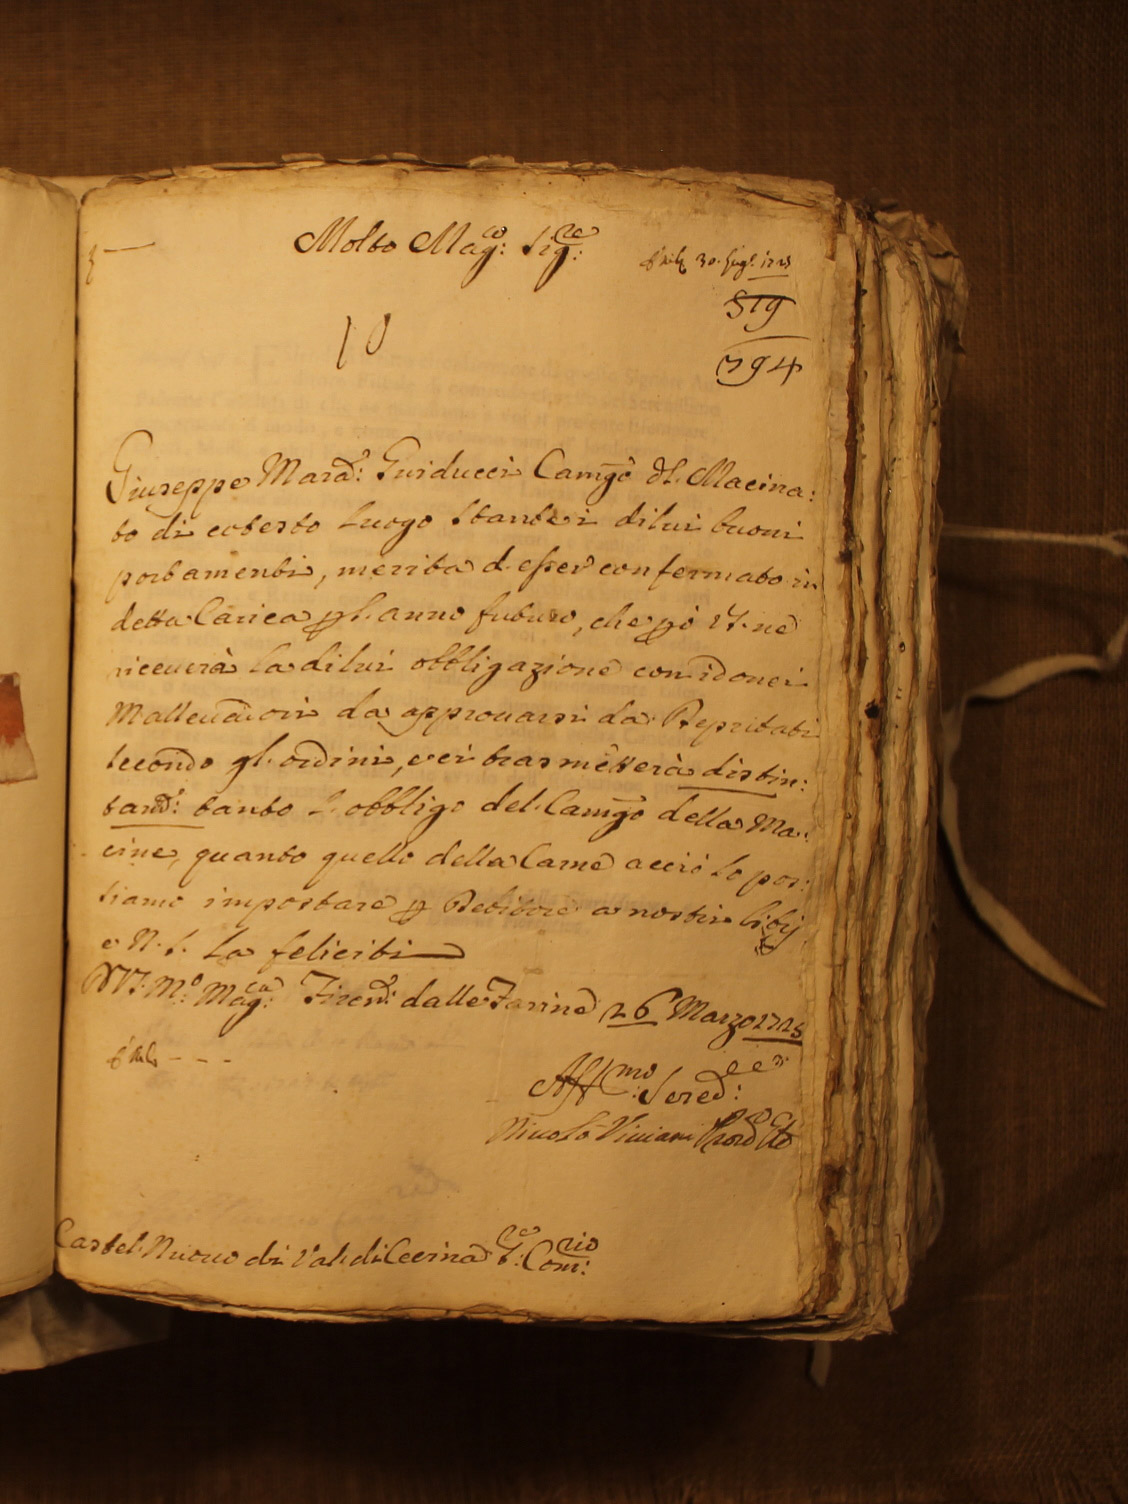 Molto Mag:co Sig:re
30. Lugl. 1725
519
794
10
Giuseppe Maria: Guiducci Camgo dl. Macina:
to di cotesto Luogo Stante i di lui buoni
portamenti, merita d. esser confermato in
detta Carica p l. anno futuro, che però V.S. ne
riceverà la di lui obbligazione con idonei
Mallevadori da approvarsi da Repritati
secondo gl. ordini, e ci trasmetterà distin:
tamte: tanto l. obbligo del Camgo della Ma:
cine, quanto quello della Carne acciò lo pos:
siamo impostare p Debitore a nostri libij
e N. S. La feliciti
D V.S. Mo: Mag:ca Firenze: dalle Farine 26 Marzo 1725
Aff:mo Sered:
Niccolò Viviani Prov:
Castel Nuovo di Val di Cecina Sre: Com:rio